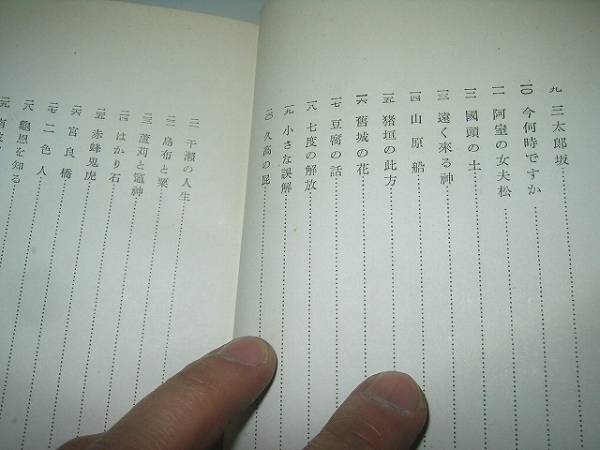 九 三太郎坂
一〇 今何時ですか
一一 阿室の女夫松
一二 國頭の土
一三 遠く來る神
一四 山原船
一五 猪垣の此方
一六 舊城の花
一七 豆腐の話
一八 七度の解放
一九 小さな誤解
二〇 久高の屁
二一 干瀬の人生
二二 島布と粟
二三 蘆苅と竈神
二四 はかり石
二五 赤蜂鬼虎
二六 宮良橋
二七 二色人
二八 龜恩を知る
二九 南